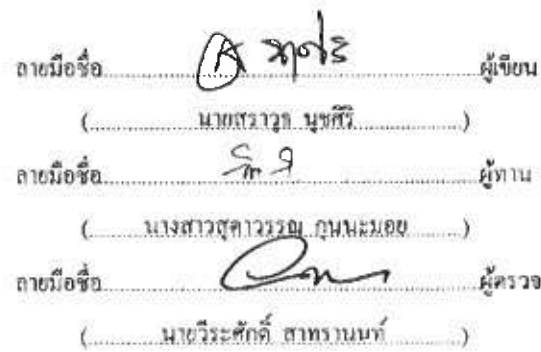 ลายมือชื่อ ผู้เขียน
( นายสราวุธ นุชศิริ )
ลายมือชื่อ ผู้ทาน
( นางสาวสุดาวรรณ กุนนะมอย )
ลายมือชื่อ ผู้ตรวจ
( นายวีระศักดิ์ สาทรานนท์ )